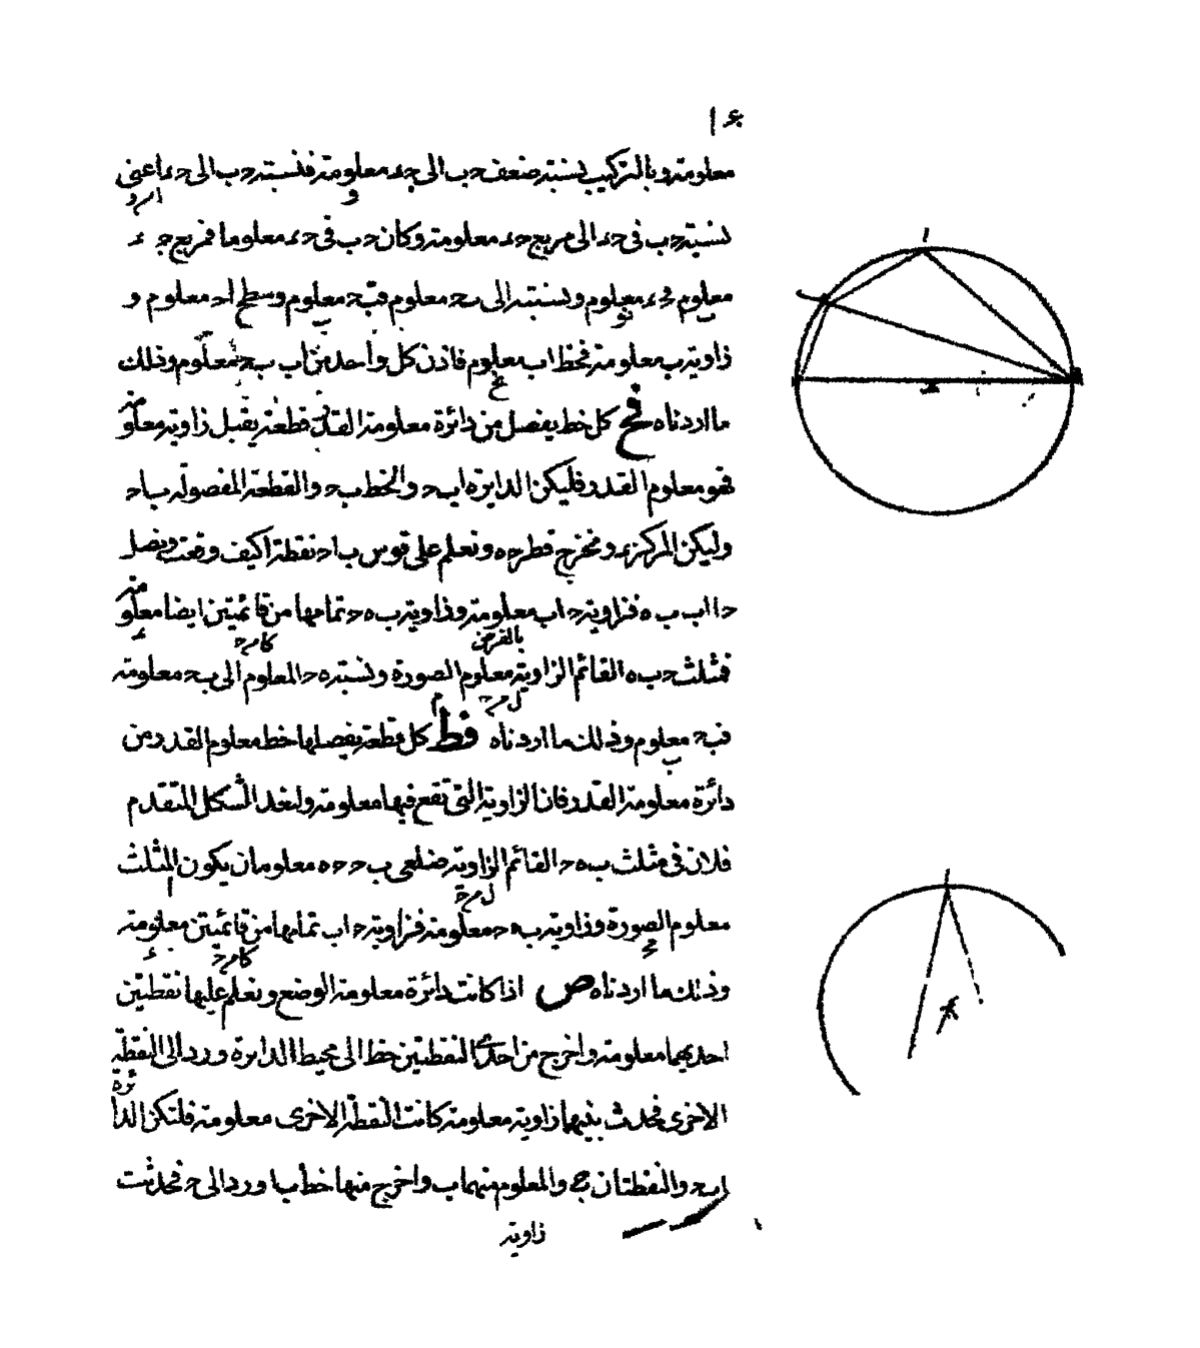 معلومة وبالتركيب نسبة ضعف حب الى حء معلومة فنسبة حب الى حء اعنى
نسبة حب فى حء الى مربع حء معلومة وكان حب فى حء معلوما فمربع حء
معلوم فحء معلوم ونسبته الى بح معلوم فبح معلوم وسطح اح معلوم و
زاوية ب معلومة فخط اب معلوم فاذن كل واحد من اب بح معلوم وذلك
ما اردناه فح كل خط يفصل من دائرة معلومة القدر قطعة يقبل زاوية معلومة
فهو معلوم القدر فليكن الدايرة ابح والخط بح والقطعة المفصولة باح
وليكن المركز ء ونخرج قطر حه ونعلم على قوس باح نقطة ا كيف وقعت ونصل
حا اب به فزاوية حاب معلومة وزاوية بهح تمامها من قائمتين ايضا معلومة
بالفرض
فمثلث حبه القائم الزاوية معلوم الصورة ونسبة هح المعلوم الى بح معلومة
فبح معلوم وذلك ما اردناه فط كل قطعة يفصلها خط معلوم القدر من
دائرة معلومة القدر فان الزاوية التى تقع فيها معلومة ولنعد الشكل المتقدم
فلان فى مثلث بهح القائم الزاوية ضلعى بح حه معلومان يكون المثلث
معلوم الصورة وزاوية بهح معلومة فزاوية حاب تمامها من قائمتين معلومة
وذلك ما اردناه ص اذا كانت دائرة معلومة الوضع ونعلم عليها نقطتين
احديهما معلومة واخرج من احدى النقطتين خط الى محيط الدايرة ورد الى النقطة
الاخرى فحدث بينهما زاوية معلومة كانت النقطة الاخرى معلومة فلتكن الدائرة
ابح والنقطتان بح والمعلوم منهما ب واخرج منها خط با ورد الى ح فحدثت
زاوية